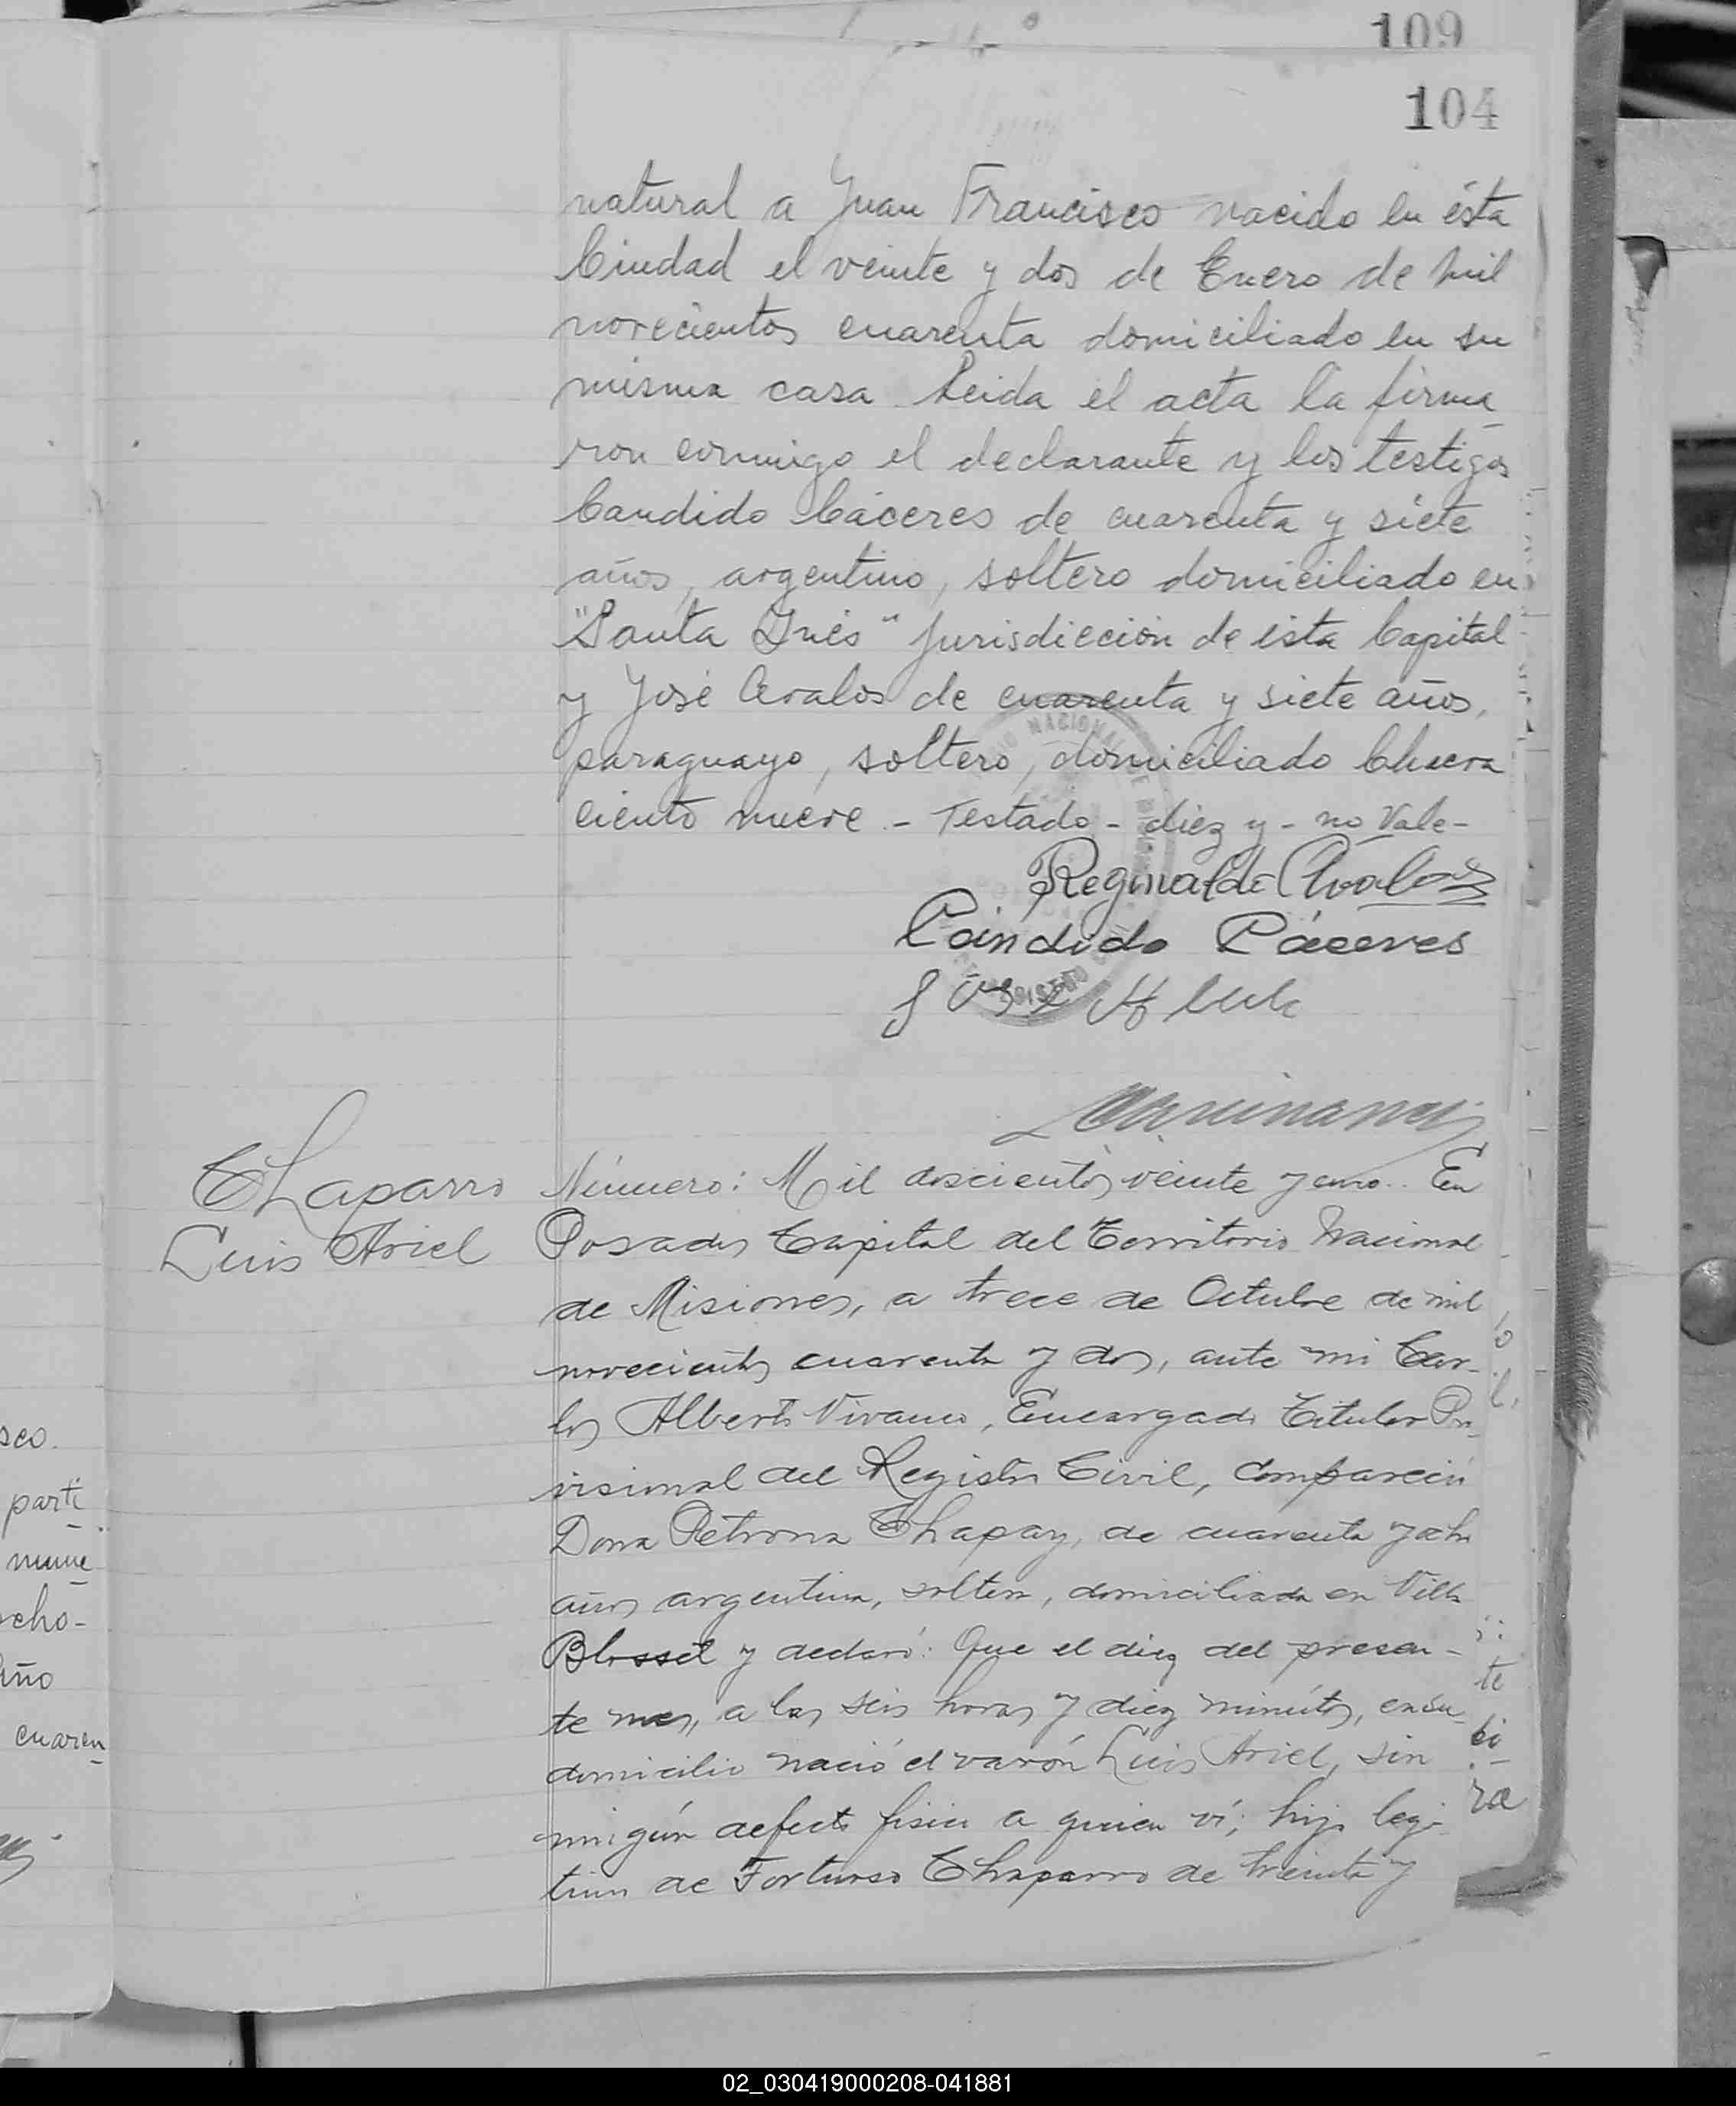 109
104
natural a Juan Francisco nacido en ésta
Ciudad el veinte y dos de Enero de mil
novecientos cuarenta domiciliado en su
misma casa Leida el acta la firma
ron conmigo el declarante y los testigos
Candido Cáceres de cuarenta y siete
años, argentino, soltero domiciliado en
"Santa Inés" Jurisdicción de ésta Capital
y José Avalos de cuarenta y siete años,
paraguayo, soltero, domiciliado Chacra
ciento nueve - Testado - diez y - no Vale -
Reginaldo Avalos
Cándido Cáceres
José
Chaparro
Luis Ariel
Número: Mil doscientos veinte y uno.. En
Posadas Capital del Territorio Nacional
de Misiones, a trece de Octubre de mil
novecientos cuarenta y dos, ante mi Car-
los Alberto Vivanco, Encargado Titular Pro-
visional del Registro Civil, compareció
Doña Petrona Chapay, de cuarenta y ocho
años argentina, soltera, domiciliada en Villa
Blosset y declaró: Que el diez del presen-
te mes, a las seis horas y diez minutos, en su
domicilio nació el varón Luis Ariel, sin
ningún defecto fisico a quien ví; hijo legi-
timo de Fortunso Chaparro de treinta y
sco.
parti
nueve
ocho-
cuaren
te
ra
02_030419000208-041881